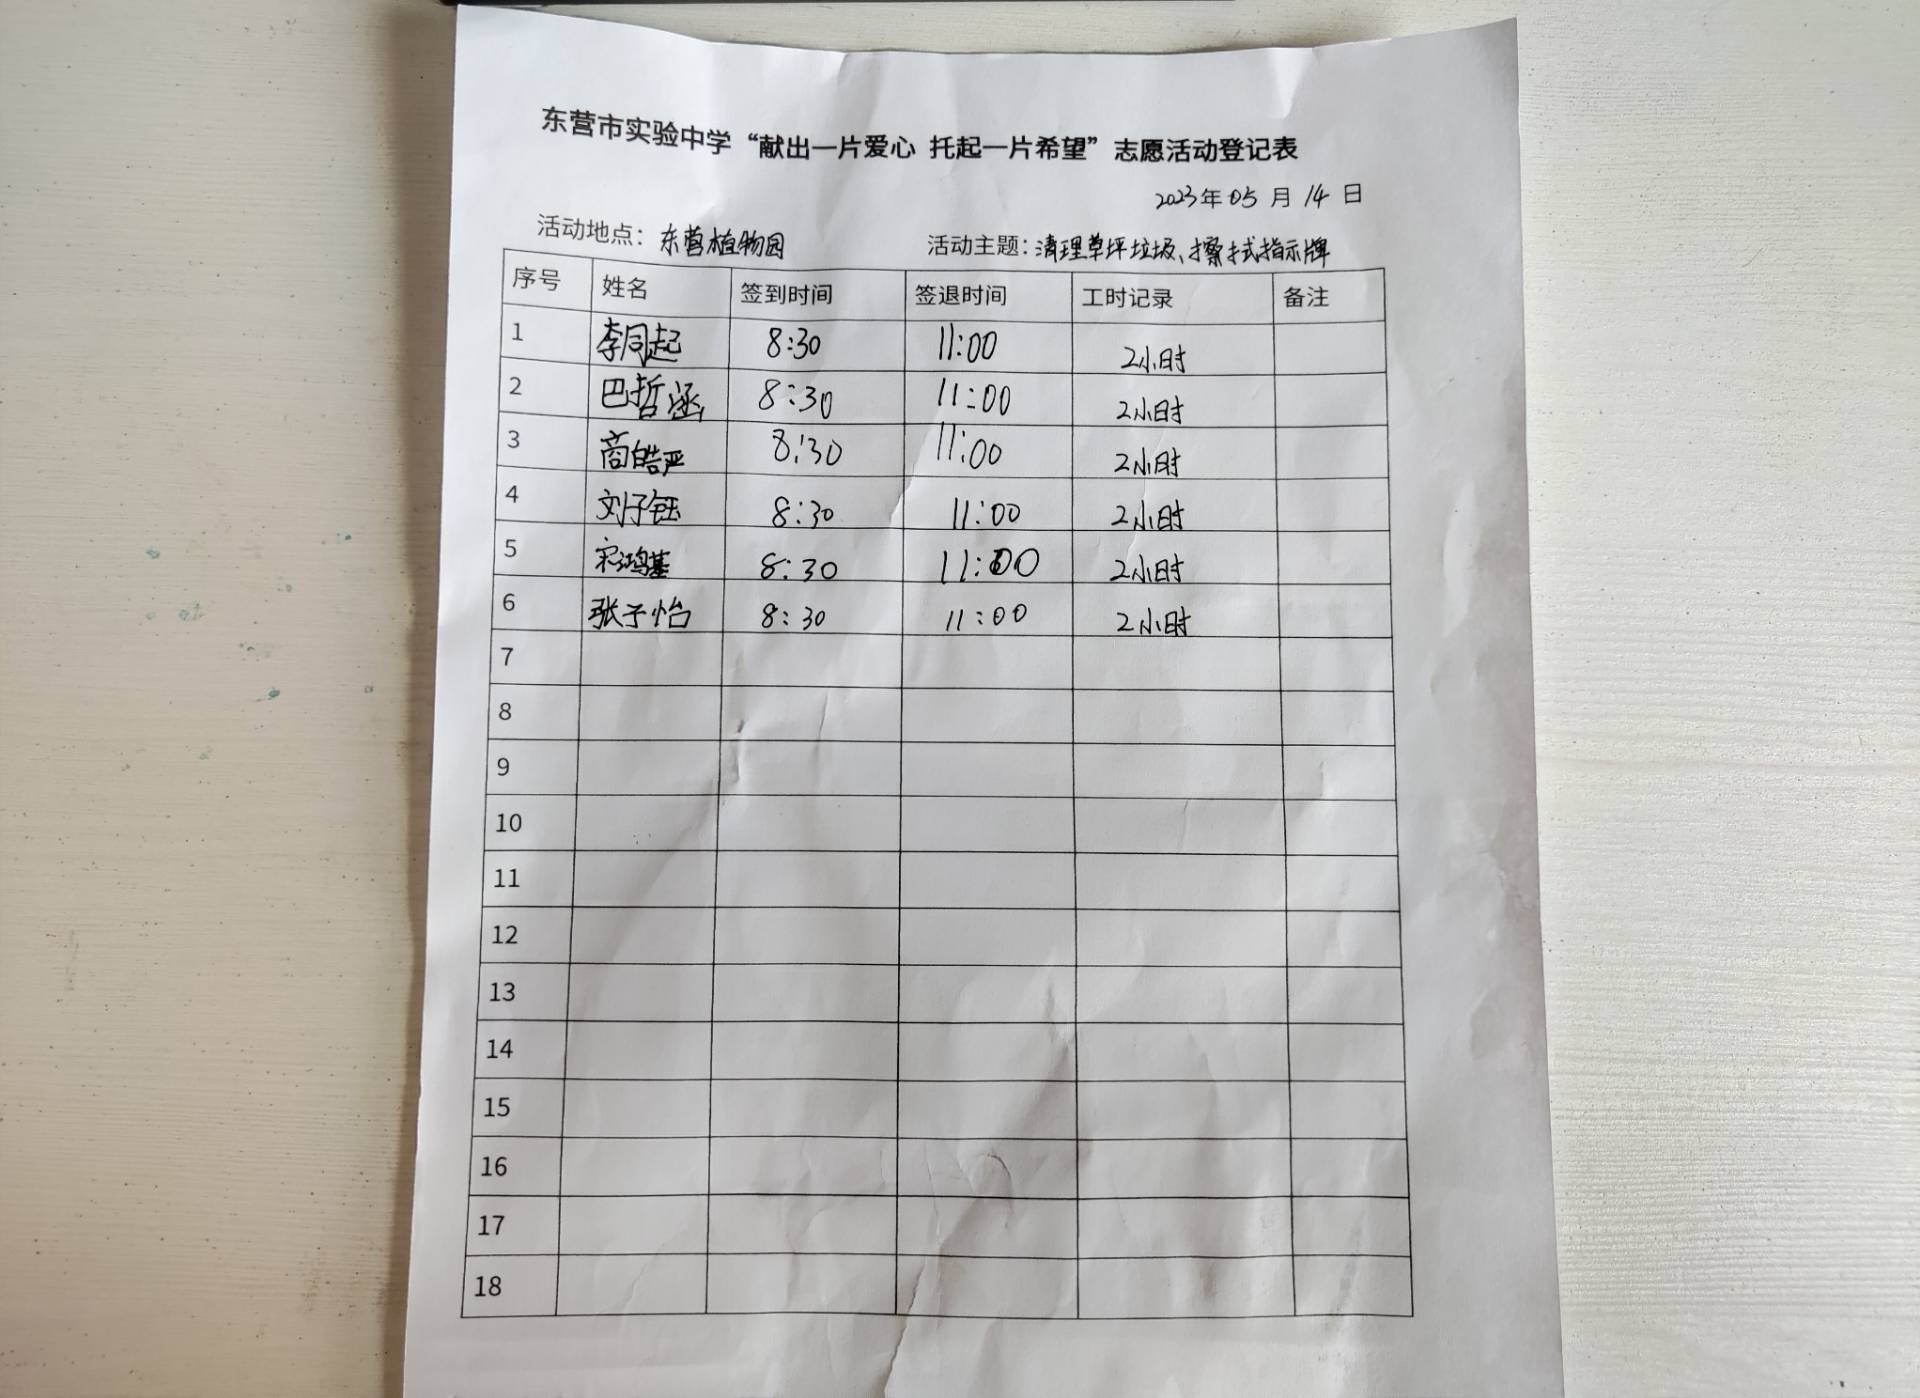 东营市实验中学“献出一片爱心 托起一片希望”志愿活动登记表
2023年05月14日
活动地点：东营植物园 活动主题：清理草坪垃圾、擦拭指示牌
序号 姓名 签到时间 签退时间 工时记录 备注
1 李同起 8:30 11:00 2小时
2 巴哲涵 8:30 11:00 2小时
3 商皓严 8:30 11:00 2小时
4 刘子钰 8:30 11:00 2小时
5 宋鸿基 8:30 11:00 2小时
6 张子怡 8:30 11:00 2小时
7
8
9
10
11
12
13
14
15
16
17
18